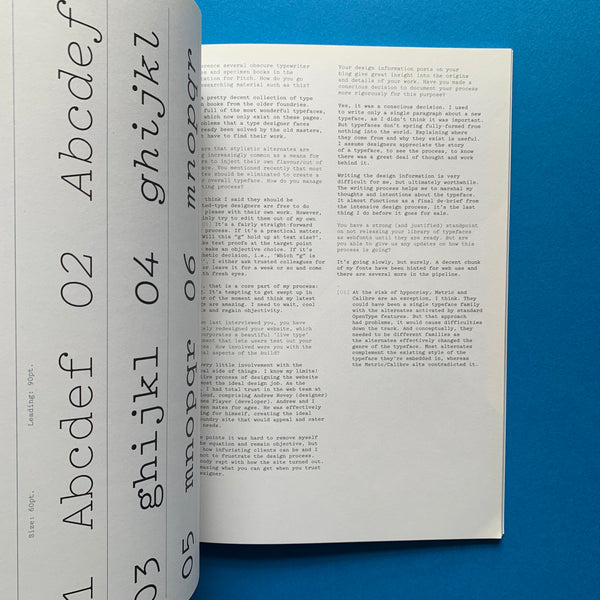 Size: 60pt. Leading: 90pt.
1 Abcdef 02 Abcdef
03 ghijkl 04 ghijkl
05 mnopqr 06 mnopqr
several obscure typewriter
and specimen books in the
for Pitch. How do you go
searching material such as this?
pretty decent collection of type
books from the older foundries.
full of the most wonderful typefaces,
which now only exist on these pages.
that a type designer faces
been solved by the old masters,
have to find their work.
that stylistic alternates are
increasingly common as a means for
to inject their own flavour/out of
You mentioned recently that most
should be eliminated to create a
overall typeface. How do you manage
process?
think I said they should be
type designers are free to do
please with their own work. However,
try to edit them out of my own
It's a fairly straight-forward
process. If it's a practical matter,
"Will this "g" hold up at text size?",
test proofs at the target point
make an objective choice. If it's
decision, i.e., 'Which "g" is
I either ask trusted colleagues for
or leave it for a week or so and come
with fresh eyes.
that is a core part of my process:
It's tempting to get swept up in
of the moment and think my latest
are amazing. I need to wait, cool
and regain objectivity.
last interviewed you, you have
redesigned your website, which
a beautiful 'live type'
that lets users test out your
How involved were you with the
aspects of the build?
very little involvement with the
side of things. I know my limits!
process of designing the website
the ideal design job. As the
I had total trust in the web team at
comprising Andrew Hovey (designer)
Player (developer). Andrew and I
mates for ages. He was effectively
for himself, creating the ideal
site that would appeal and cater
needs.
points it was hard to remove myself
equation and remain objective, but
how infuriating clients can be and I
not to frustrate the design process.
rapt with how the site turned out.
what you can get when you trust
designer.
Your design information posts on your
blog give great insight into the origins
and details of your work. Have you made a
conscious decision to document your process
more rigorously for this purpose?
Yes, it was a conscious decision. I used
to write only a single paragraph about a new
typeface, as I didn't think it was important.
But typefaces don't spring fully-formed from
nothing into the world. Explaining where
they come from and why they exist is useful.
I assume designers appreciate the story
of a typeface, to see the process, to know
there was a great deal of thought and work
behind it.
Writing the design information is very
difficult for me, but ultimately worthwhile.
The writing process helps me to marshal my
thoughts and intentions about the typeface.
It almost functions as a final de-brief from
the intensive design process. it's the last
thing I do before it goes for sale.
You have a strong (and justified) standpoint
on not releasing your library of typefaces
as webfonts until they are ready. But are
you able to give us any updates on how this
process is going?
It's going slowly, but surely. A decent chunk
of my fonts have been hinted for web use and
there are several more in the pipeline.
At the risk of hypocrisy, Metric and
Calibre are an exception, I think. They
could have been a single typeface family
with the alternates activated by standard
OpenType features. But that approach
had problems, it would cause difficulties
down the track. And conceptually, they
needed to be different families as
the alternates effectively changed the
genre of the typeface. Most alternates
complement the existing style of the
typeface they're embedded in, whereas
the Metric/Calibre alts contradicted it.